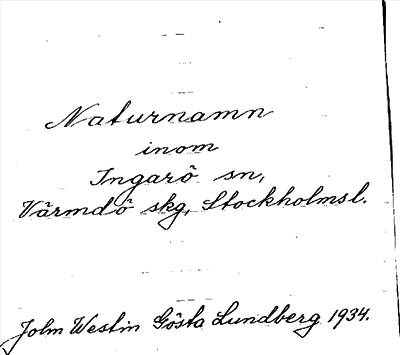 Naturnamn
inom
Ingarö sn,
Värmdö skg, Stockholmsl.
John Westin Gösta Lundberg 1934.